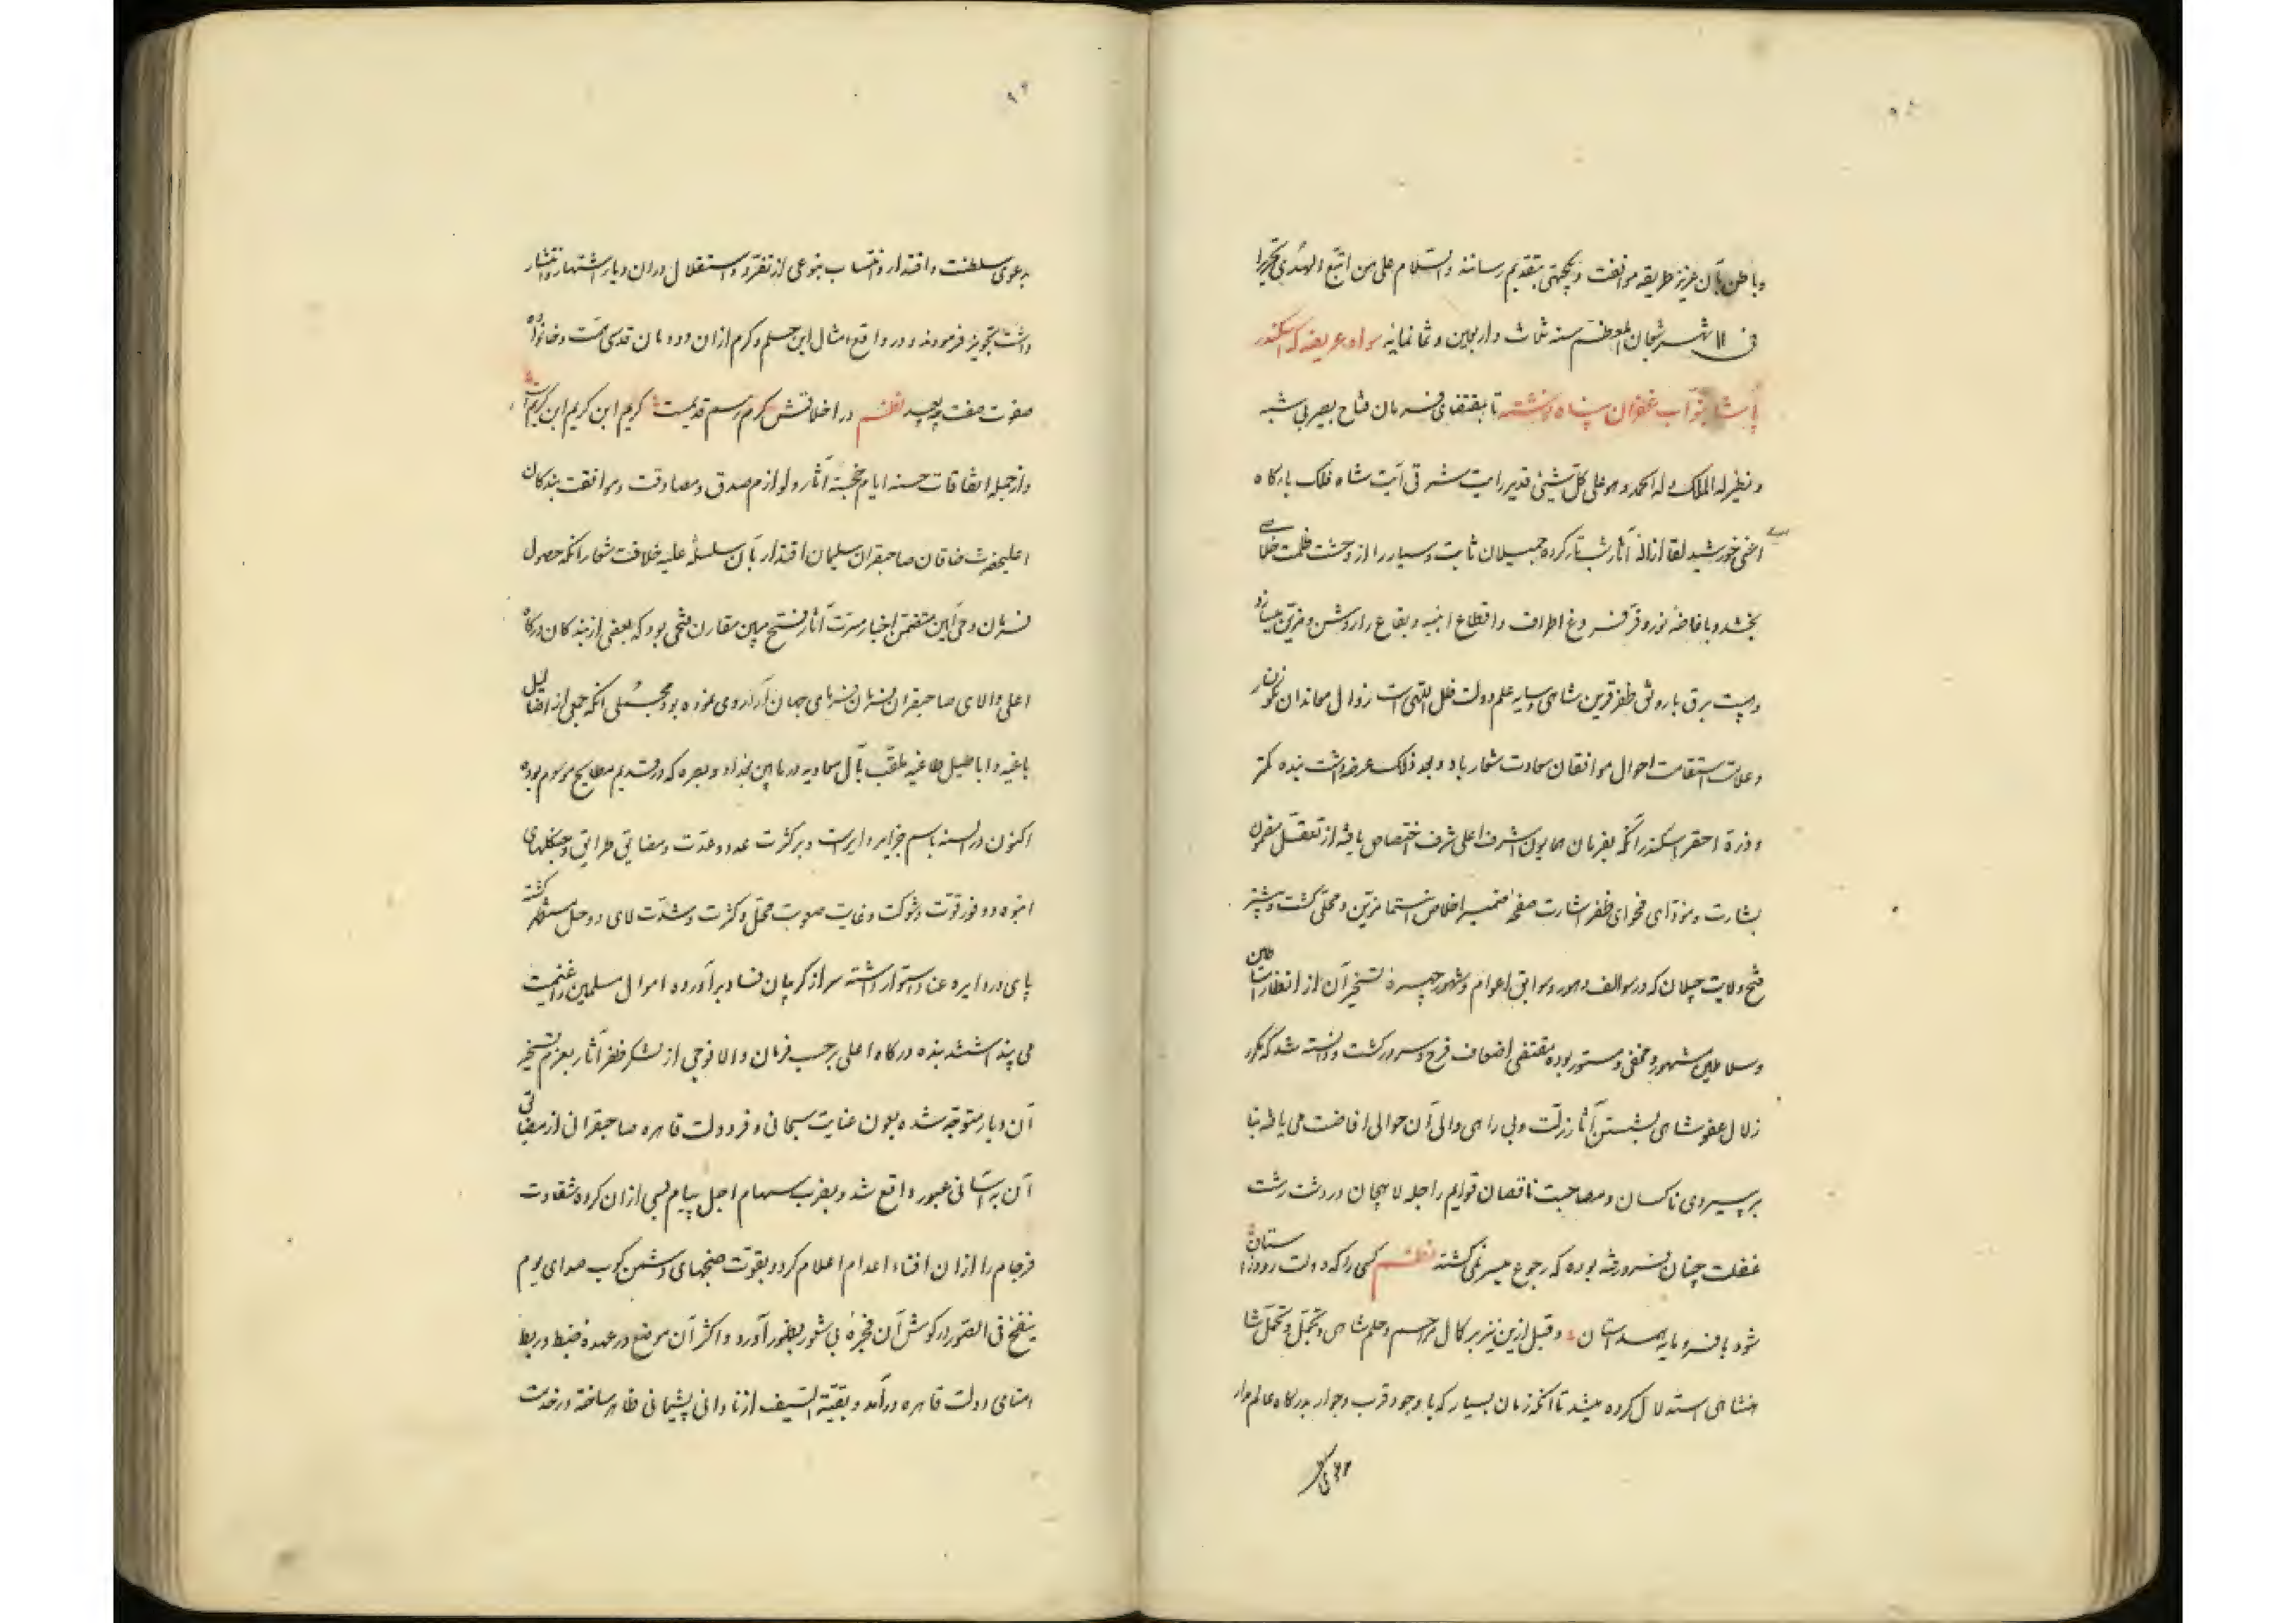 و باطن بآن عزیز طریقه موافقت و یکجهتی بتقدیم رسانند والسلام علی من اتبع الهدی تحریرا
فی ۱۱ شهر شعبان المعظم سنه ثلث و اربعین و ثمانمایه سواد عریضه که اسکندر
پاشا بنواب غفران پناه نوشته تا بمقتضای فرمان فتاح بصیر بی شبه
و نظیر له الملک و له الحمد و هو علی کل شیئی قدیر رایت شرقی آیت شاه فلک بارگاه
اعنی خورشید لقا ازاله آثار شب تار کرده جمیلان ثابت و سیار را از وحشت ظلمت خلاصی
بخشد و بافاضه نور و قر فروغ اطراف و اقطاع ابنیه و بقاع را روشن و مزین میسازد
و علامت استقامت احوال موافقان سعادت شعار باد و بعد ذلک عرضه داشت بنده کمتر
و ذره احقر اسکندر آنکه بفرمان همایون اشرف اعلی شرف اختصاص یافته از تعقل مضمون
بشارت و مؤدای فحوای ظفر اشارت صفحه ضمیر اخلاص انتما مزین و محلی گشت و بیشتر
فتح ولایت جیلان که در سوالف دهور و سوابق اعوام و شهور چهره تسخیر آن از انظار اساطین
و سلاطین مشهور و مخفی و مستور بوده مقتضی اضعاف فرح و سرور گشت و دانسته شد که مکرر
زلال عفو شاهی بشستن آثار زلت و بی راهی والی آن حوالی افاضت می یافته بنا
بر پیروی ناکسان و مصاحبت ناقصان قوایم راحله لاهیجان در دشت رشت
غفلت چنان فرو رفته بوده که رجوع میسر نمی گشته نظم کسی را که دولت رود زاستان
شود با فرومایه همداستان و قبل ازین نیز بر کمال مراحم و حلم شاهی و تجمل و تحمل شا
هنشاهی استدلال کرده میشد تا آنکه زمان بسیار که با وجود قرب و جوار بدرگاه عالم مدار
بدعوی سلطنت و اقتدار و انتساب بنوعی از تفرد و استقلال در ان دیار اشتهار و انتشار
داشت تجویز فرمودند و در واقع امثال این حلم و کرم از ان دودمان قدسی سمت و خانواده
صفوت صفت چه بعید نظم در اخلاقش کرم رسم قدیمست کریم ابن کریم ابن کریم است
و از جمله اتفاقات حسنه ایام خجسته آثار و لوازم صدق و مصادقت و موافقت بندگان
اعلیحضرت خاقان صاحبقران سلیمان اقتدار بآن سلسله علیه خلافت شعار آنکه حصول
فرمان وحی آیین متضمن اخبار مسرت آثار فتح مبین مقارن فتحی بود که بعضی از بندگان درگاه
اعلی والای صاحبقران را روی نموده بود مجملی آنکه جمعی از اضالیل
باغیه و اباطیل طاغیه ملقب بآل معاویه در مابین بغداد و بصره که در قدیم بطایح موسوم بوده
اکنون در السنه باسم جزایر دایراست و بر کثرت عدد و عدت و مضایق طرایق و جنگلهای
انبوه و وفور قوت و شوکت و غایت صعوبت محل و کثرت و شدت لای و وحل مستظهر گشته
پای در دایره عناد استوار داشته سر از گریبان فساد برآورده اموال مسلمین را غنیمت
می پنداشتند بنده درگاه اعلی برحسب فرمان والا فوجی از لشکر ظفر آثار بعزم تسخیر
آن دیار متوجه شده بعون عنایت سبحانی و فر دولت قاهره صاحبقرانی از مضایق
آن به آسانی عبور واقع شد و بضرب سهام اجل پیام بسی از ان گروه شقاوت
فرجام را از ان افناء اعدام اعلام کرد و بقوت صنجهای دشمن کوب صدای یوم
ینفخ فی الصور در گوش آن فجره بی شعور بظهور آورد و اکثر آن موضع در عهده ضبط و ربط
امنای دولت قاهره درآمد و بقیة السیف از نادانی پشیمانی ظاهر ساخته در خدمت